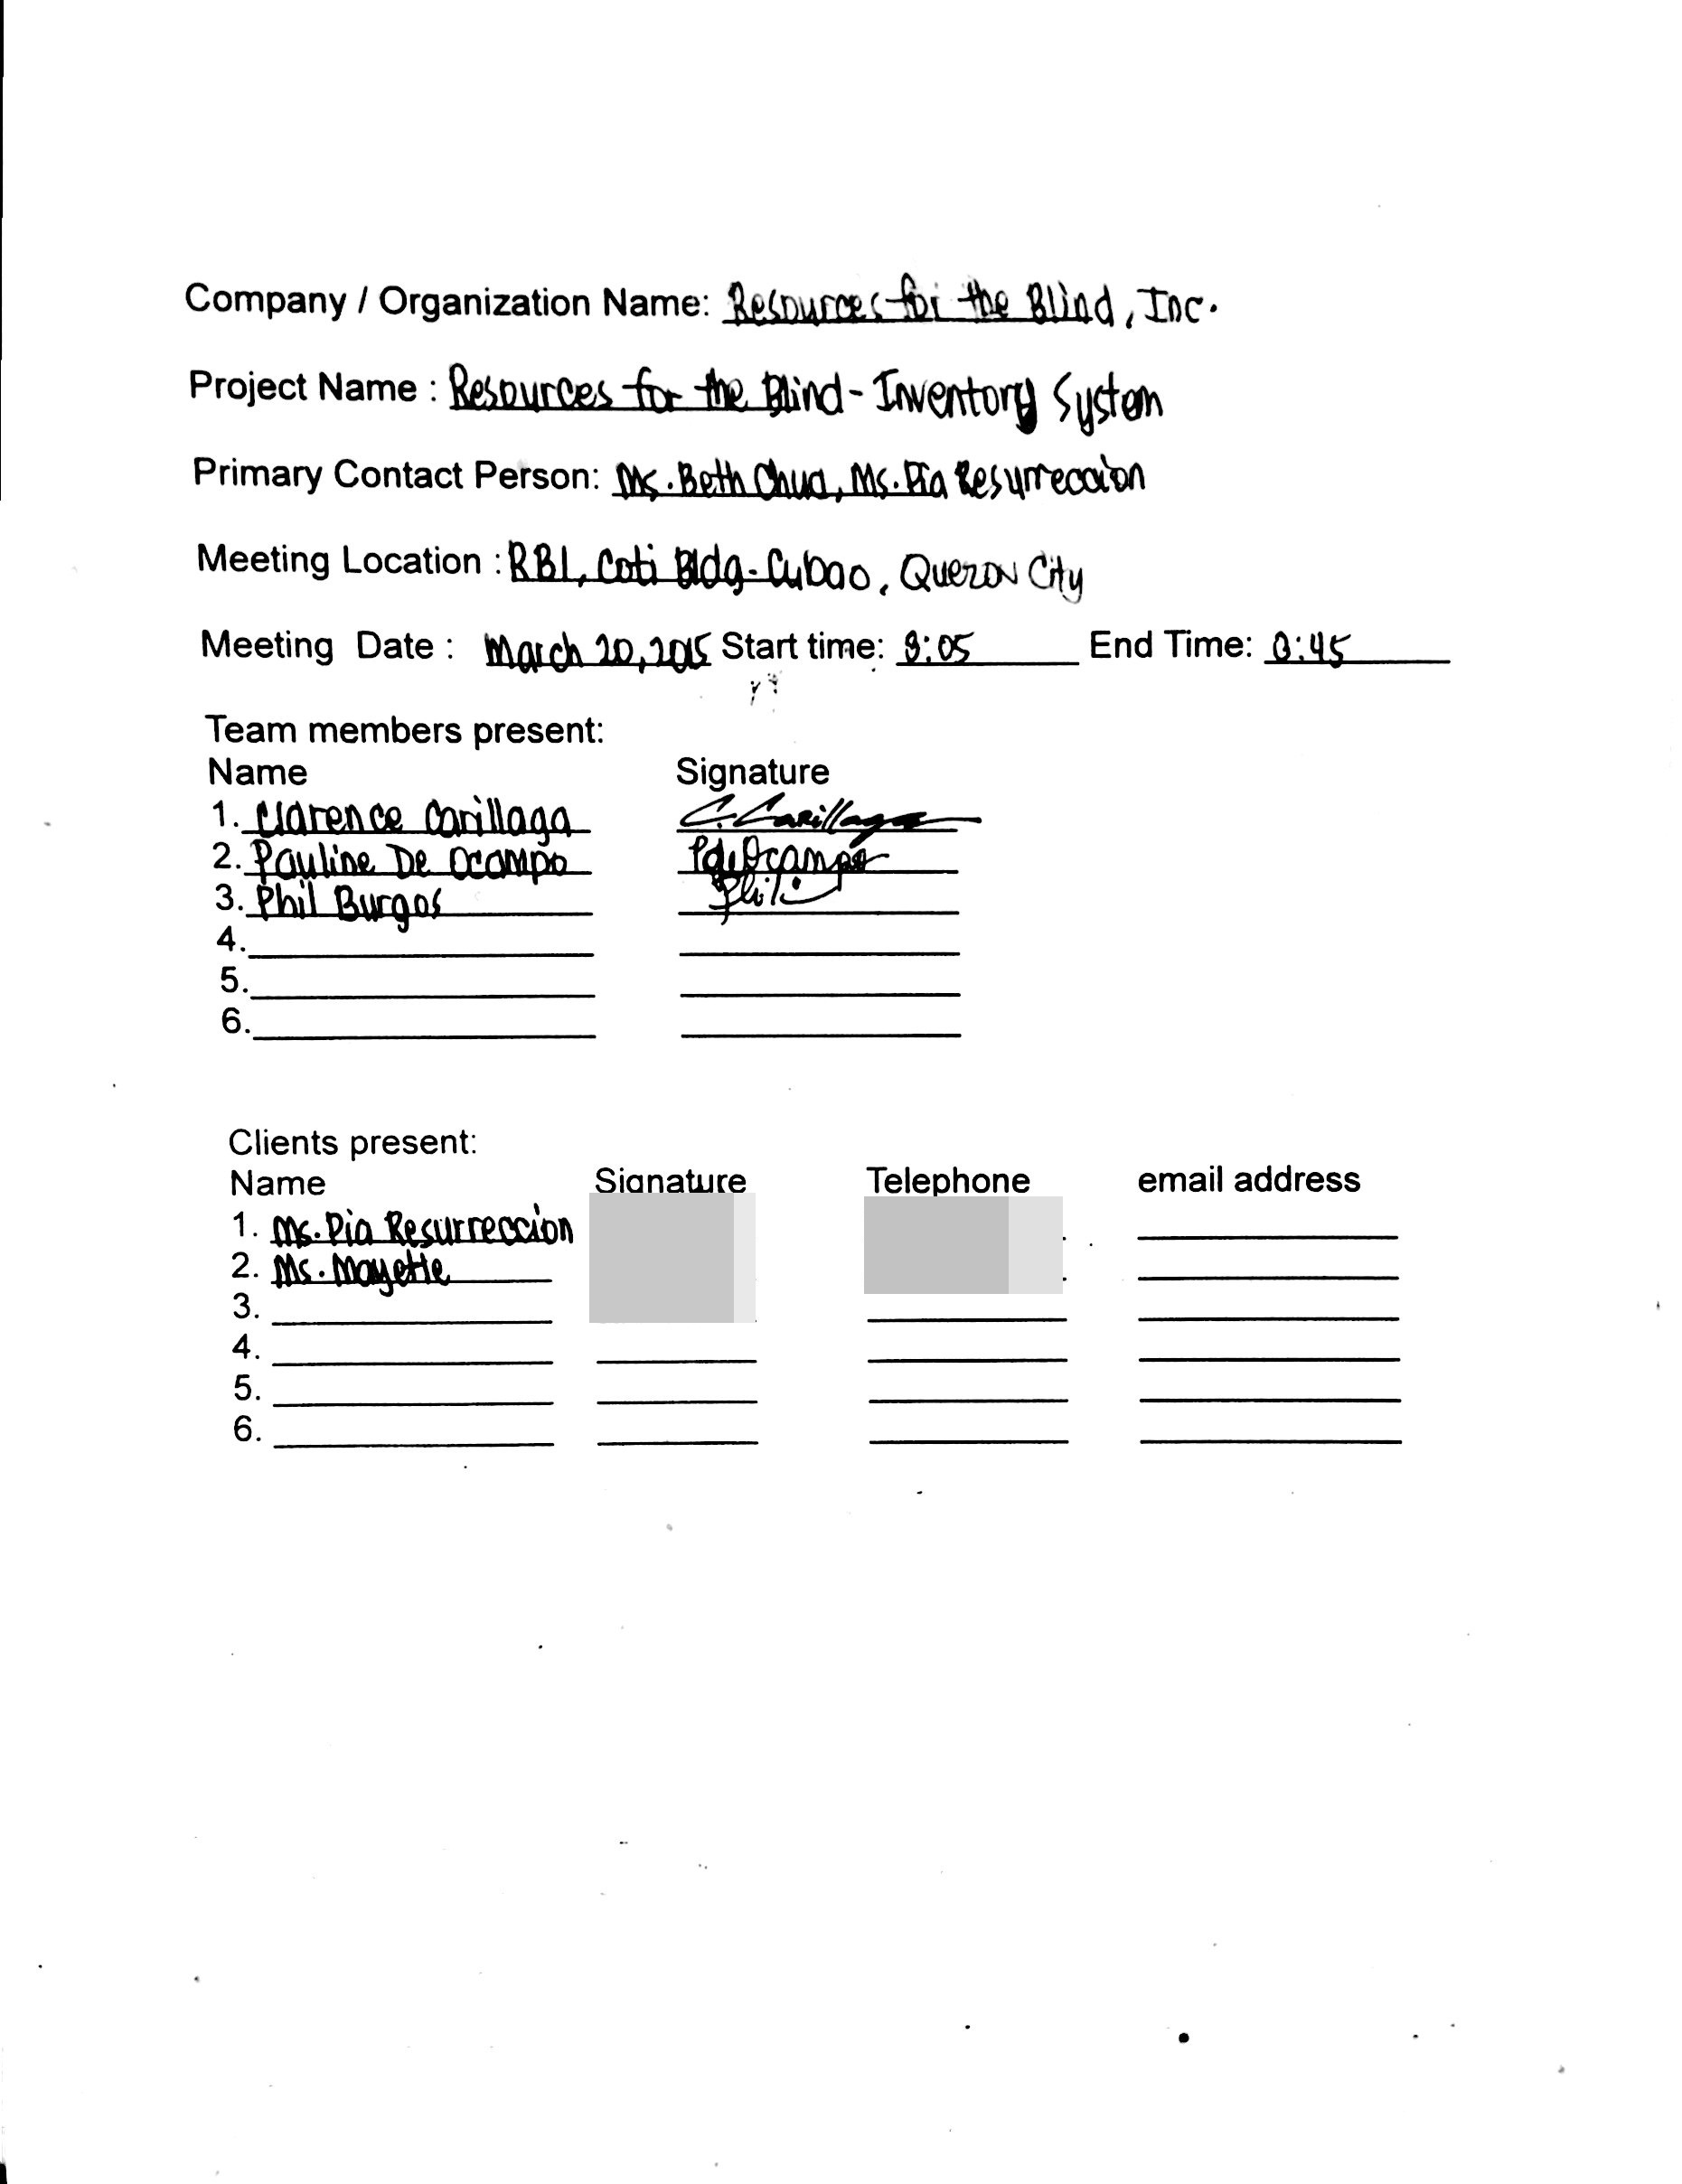 Company / Organization Name: Resources for the Blind, Inc.
Project Name : Resources for the Blind - Inventory System
Primary Contact Person: Ms. Beth Chua, Ms. Pia Resurreccion
Meeting Location : RBI, Coti Bldg - Cubao, Quezon City
Meeting Date : March 20, 2015 Start time: :05 End Time: :45
Team members present:
Name Signature
1. Clarence Carillaga C. Carillaga
2. Pauline De Ocampo PdeOcampo
3. Phil Burgos Phil
4.
5.
6.
Clients present:
Name Signature Telephone email address
1. Ms. Pia Resurreccion
2. Ms. Mayette
3.
4.
5.
6.